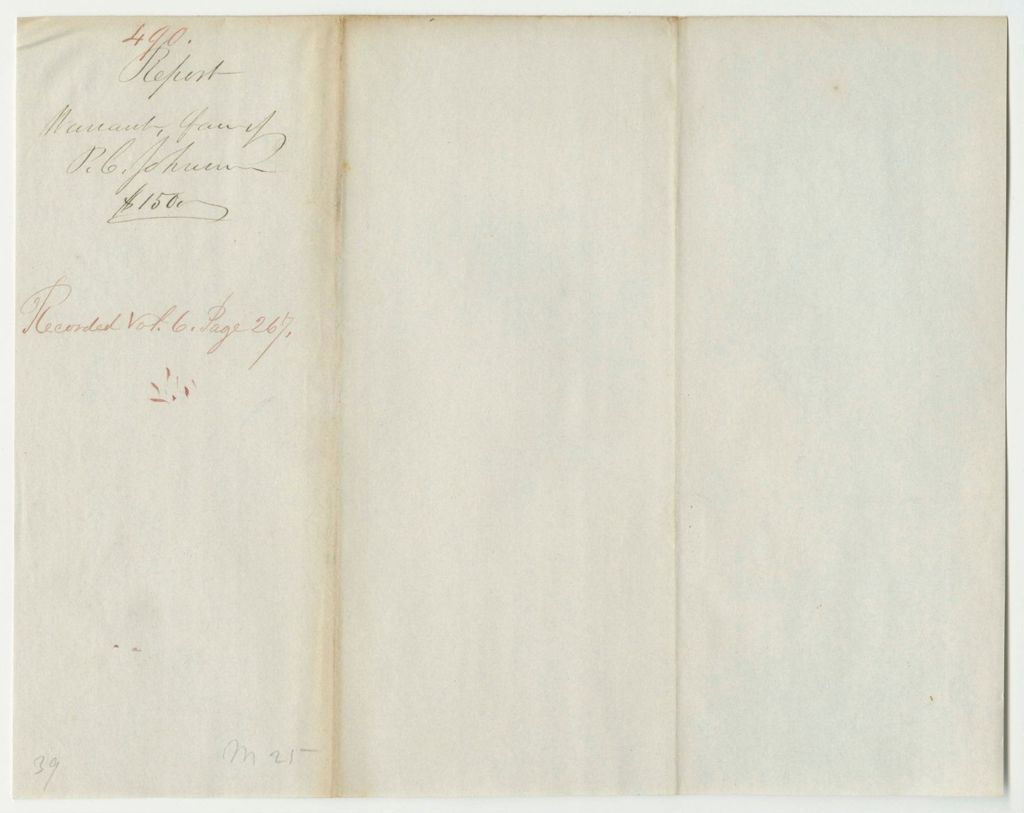 490.
Report
Warrant, favr of
P. C. Johnson
$1500
Recorded Vol. 6. Page 267.
39
M 25